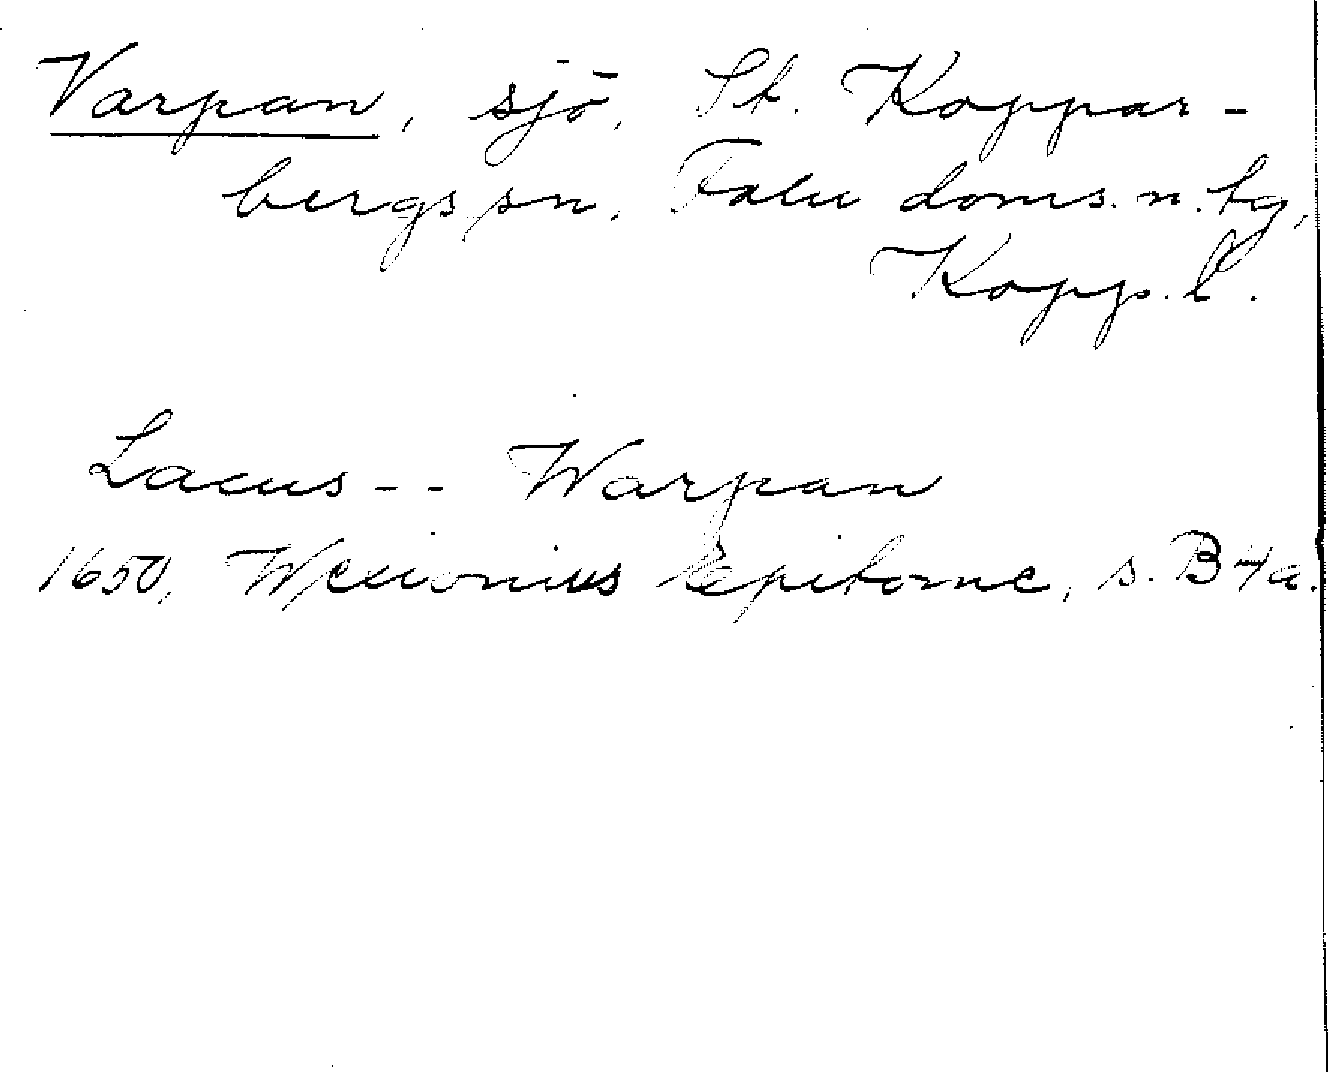 Varpan, sjö, St. Koppar-
bergs sn, Falu doms. n. tg,
Kopp. l.
Lacus -- Warpan
1650, Wexionius Epitome, s. B4a.